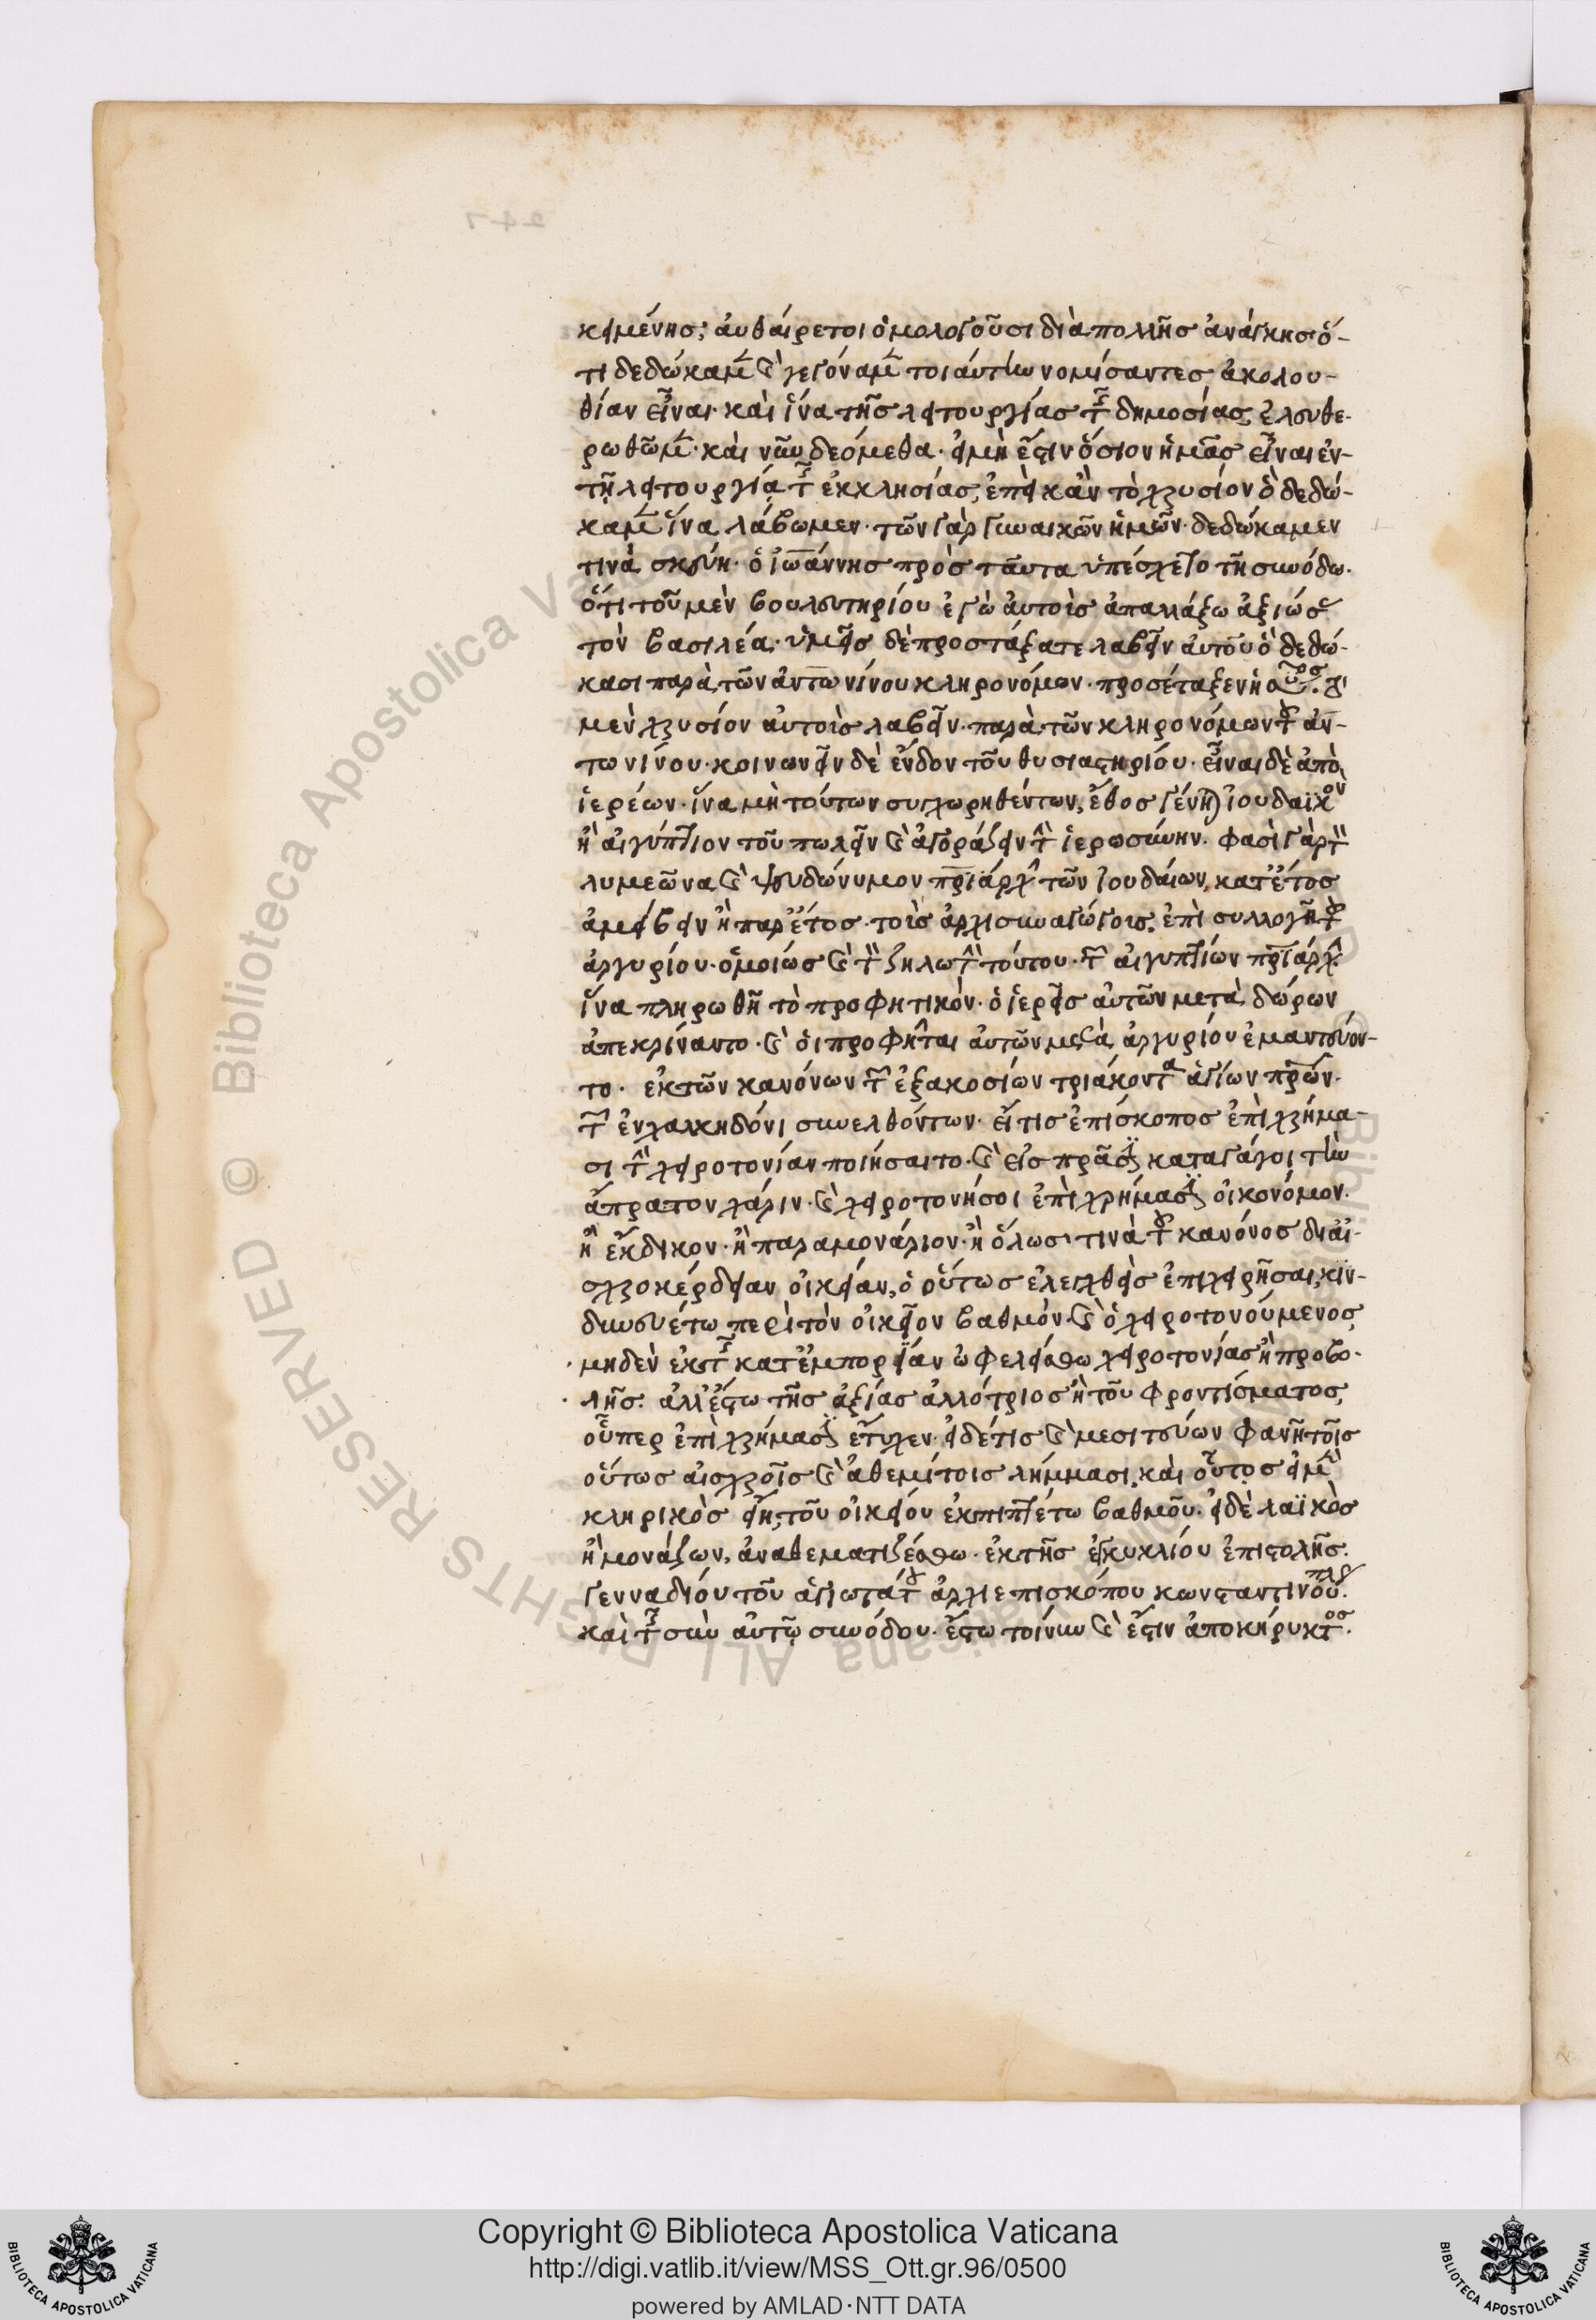 κειμένης; ἀυθάιρετοι ὁμολογοῦσι διὰ πολλῆς ἀνάγκης ὅ-
τι δεδώκαμεν καὶ γεγόναμεν τοιάυτην νομίσαντες ἀκολου-
θίαν εἶναι· καὶ ἵνα τῆς λειτουργίας τῆς δημοσίας ἐλευθε-
ρωθῶμεν· καὶ νῦν δεόμεθα· εἰ μὴ ἔστιν ὅσιον ἡμᾶς εἶναι ἐν
τῆ λειτουργία τῆς ἐκκλησίας, ἐπεὶ κἂν τὸ χρυσίον ὃ δεδώ-
καμεν ἵνα λάβωμεν· τῶν γὰρ γυναικῶν ἡμῶν δεδώκαμεν
τινὰ σκεύη· ὁ ἰωάννης πρὸς ταῦτα ὑπέσχετο τῆ συνόδω·
ὅτι τοῦ μὲν βουλευτηρίου ἐγὼ ἀυτοὶς ἀπαλλάξω ἀξιώσας
τὸν βασιλέα· ὑμεῖς δὲ προστάξατε λαβεῖν ἀυτοὺ ὃ δεδώ-
κασι παρὰ τῶν ἀντωνίνου κληρονόμων· προσέταξεν ἡ σύνοδος· τὸ
μὲν χρυσίον ἀυτοὶς λαβεῖν· παρὰ τῶν κληρονόμων τοῦ ἀν-
τωνίνου· κοινωνεῖν δὲ ἔνδον τοῦ θυσιαστηρίου· εἶναι δὲ ἀπὸ
ἱερέων· ἵνα μὴ τούτων συγχωρηθέντων, ἔθος γένηται ἰουδαϊκὸν
ἢ αἰγύπτιον τοῦ πωλεῖν καὶ ἀγοράζειν τὴν ἱερωσύνην· φασὶ γὰρ τὸν
λυμεῶνα καὶ ψευδώνυμον πριάρχην τῶν ἰουδαίων, κατ' ἔτος
ἀμείβειν ἢ παρ' ἔτος· τοὶς ἀρχισυναγώγοις, ἐπὶ συλλογῆ τοῦ
ἀργυρίου· ὁμοιώς καὶ τὸν ζηλωτὴν τούτου· τῶν αἰγυπτίων πριάρχην·
ἵνα πληρωθῆ τὸ προφητικόν· ὁ ἱερεῖς αὐτῶν μετὰ δώρων
ἀπεκρίναντο· καὶ ὁι προφῆται ἀυτῶν μετὰ ἀργυρίου ἐμαντεύον-
το· ἐκ τῶν κανόνων τῶν ἑξακοσίων τριάκοντα ἁγίων πρων·
τῶν ἐν χαλκηδόνι συνελθόντων· εἴ τις ἐπίσκοπος ἐπὶ χρήμα-
σι τὴν χειροτονίαν ποιήσαιτο· καὶ εἰς πρᾶσιν καταγάγοι τὴν
ἄπρατον χάριν· καὶ χειροτονήσοι ἐπὶ χρήμασιν οἰκονόμον·
ἢ ἔκδικον· ἢ παραμονάριον· ἢ ὅλως τινὰ τοῦ κανόνος δι' αἰ-
σχροκέρδειαν οἰκείαν, ὁ οὕτως ἐλεγχθεὶς ἐπιχειρῆσαι, κιν-
δυνευέτω περὶ τὸν οἰκεῖον βαθμόν· καὶ ὁ χειροτονούμενος
μηδὲν ἐκ τῆς κατ' ἐμπορείαν ὠφελείσθω χειροτονίας ἢ προβο-
λῆς· ἀλλ' ἔστω τῆς ἀξίας ἀλλότριος ἢ τοῦ φροντίσματος,
οὗπερ ἐπὶ χρήμασιν ἔτυχεν· εἰ δέ τις καὶ μεσιτεύων φανῆ τοῖς
οὕτως αἰσχροῖς καὶ ἀθεμίτοις λήμμασι, καὶ οὗτος εἰ μὲν
κληρικὸς εἴη, τοῦ οἰκείου ἐκπιπτέτω βαθμοῦ· εἰ δὲ λαϊκὸς
ἢ μονάζων, ἀναθεματιζέσθω· ἐκ τῆς ἐγκυκλίου ἐπιστολῆς·
γενναδιόυ τοῦ ἁγιωτάτου ἀρχιεπισκόπου κωνσταντινουπόλεως·
καὶ τῆς σὺν αὐτῷ συνόδου· ἔστω τοίνυν καὶ ἔστιν ἀποκήρυκτος·
Copyright © Biblioteca Apostolica Vaticana
http://digi.vatlib.it/view/MSS_Ott.gr.96/0500
powered by AMLAD·NTT DATA